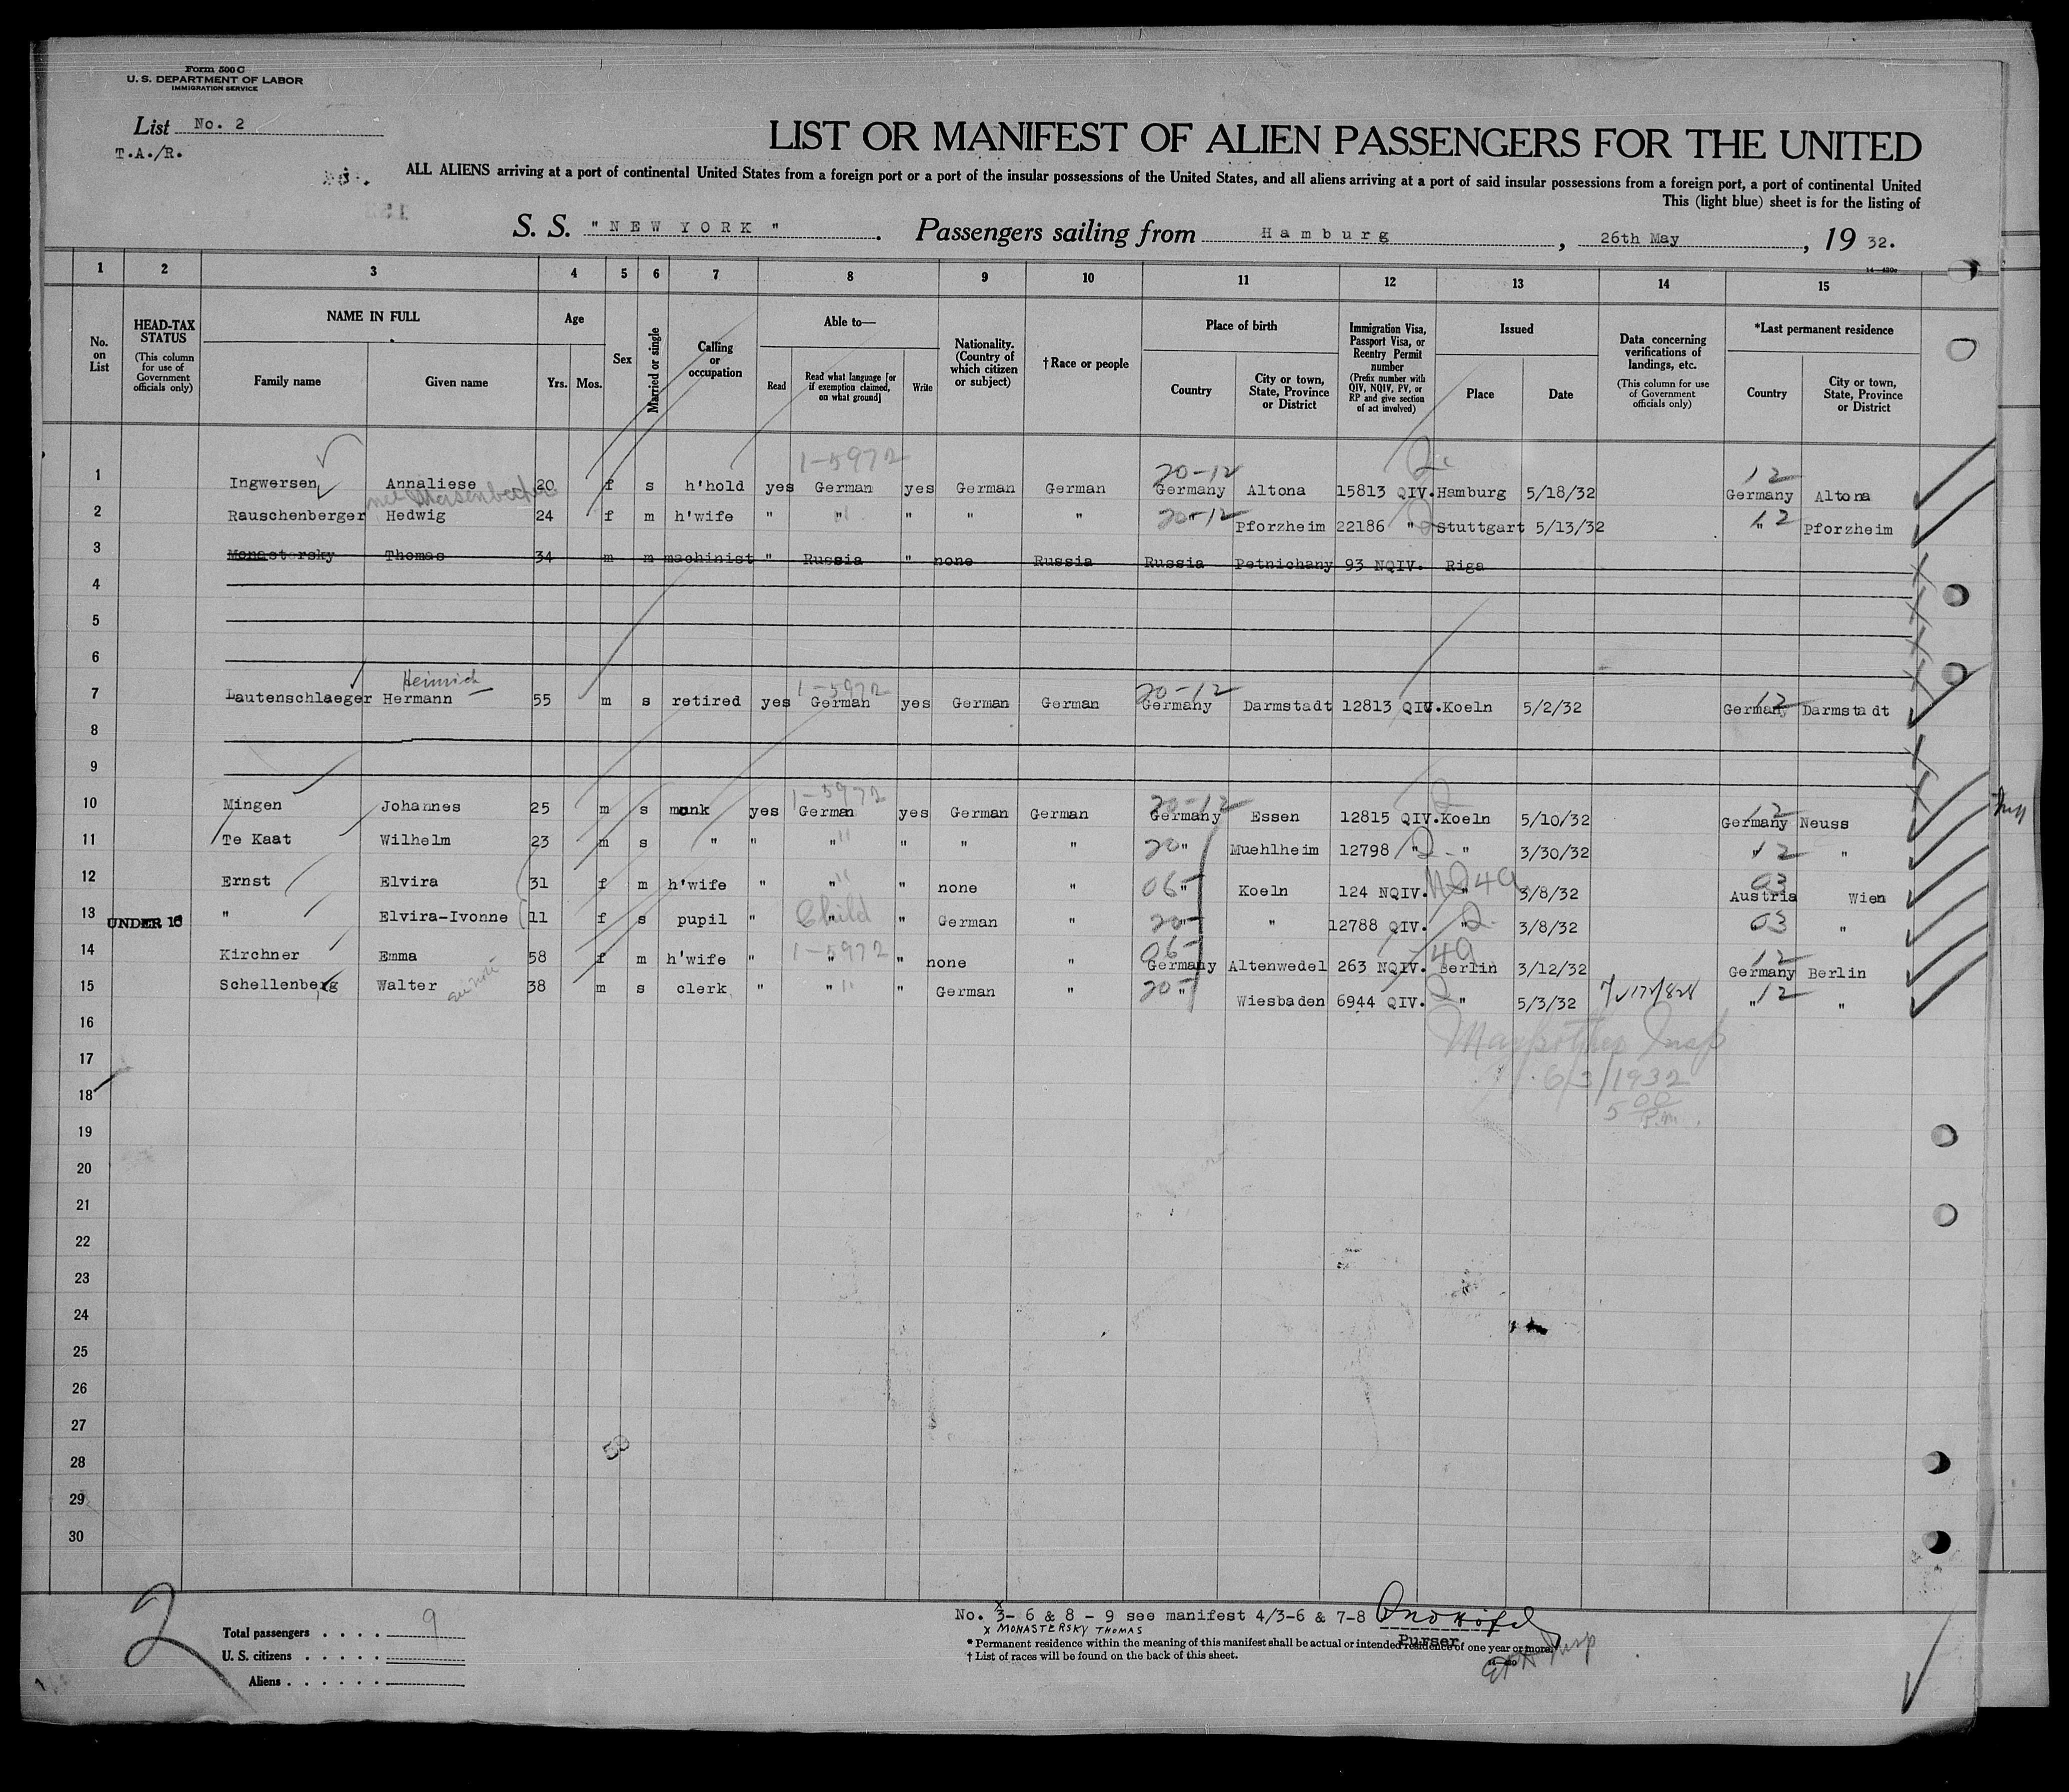 Form 500 C
U. S. DEPARTMENT OF LABOR
IMMIGRATION SERVICE
List No. 2
T.A./R.
LIST OR MANIFEST OF ALIEN PASSENGERS FOR THE UNITED
ALL ALIENS arriving at a port of continental United States from a foreign port or a port of the insular possessions of the United States, and all aliens arriving at a port of said insular possessions from a foreign port, a port of continental United
This (light blue) sheet is for the listing of
S. S. "NEW YORK". Passengers sailing from Hamburg, 26th May, 19 32.
1 2 3 4 5 6 7 8 9 10 11 12 13 14 15
No. on List
HEAD-TAX STATUS
(This column for use of Government officials only)
NAME IN FULL
Family name Given name
Age
Yrs. Mos.
Sex
Married or single
Calling or occupation
Able to—
Read Read what language [or if exemption claimed, on what ground] Write
Nationality. (Country of which citizen or subject)
†Race or people
Place of birth
Country City or town, State, Province or District
Immigration Visa, Passport Visa, or Reentry Permit number
(Prefix number with QIV, NQIV, PV, or RP and give section of act involved)
Issued
Place Date
Data concerning verifications of landings, etc.
(This column for use of Government officials only)
*Last permanent residence
Country City or town, State, Province or District
1-5972 20-12 12
1 Ingwersen Annaliese 20 f s h'hold yes German yes German German Germany Altona 15813 QIV. Hamburg 5/18/32 Germany Altona
2 Rauschenberger Hedwig 24 f m h'wife " " " " " 20-12 " Pforzheim 22186 " Stuttgart 5/13/32 12 " Pforzheim
3 Monastersky Thomas 34 m m machinist " Russia " none Russia Russia Petnichany 93 NQIV. Riga
4
5
6
Heinrich 1-5972 20-12 12
7 Lautenschlaeger Hermann 55 m s retired yes German yes German German Germany Darmstadt 12813 QIV. Koeln 5/2/32 Germany Darmstadt
8
9
1-5972 20-12 12
10 Mingen Johannes 25 m s monk yes German yes German German Germany Essen 12815 QIV. Koeln 5/10/32 Germany Neuss
11 Te Kaat Wilhelm 23 m s " " " " " " 20 " Muehlheim 12798 " " 3/30/32 12 " "
12 Ernst Elvira 31 f m h'wife " " " none " 06 " Koeln 124 NQIV. " 3/8/32 03 Austria Wien
13 UNDER 16 " Elvira-Ivonne 11 f s pupil " Child " " German " 20 " " 12788 QIV. " 3/8/32 03 "
14 Kirchner Emma 58 f m h'wife " 1-5972 " " none " 06 Germany Altenwedel 263 NQIV. 4a Berlin 3/12/32 12 Germany Berlin
15 Schellenberg Walter 38 m s clerk " " " German " 20 " Wiesbaden 6944 QIV. " 5/3/32 12 " "
16
17
6/3/1932
18
5 00 P.m.
19
20
21
22
23
24
25
26
27
28
29
30
2
Total passengers . . . . 9
U. S. citizens . . . . .
Aliens . . . . . .
No. 3- 6 & 8 - 9 see manifest 4/3-6 & 7-8
x MONASTERSKY THOMAS
Purser
* Permanent residence within the meaning of this manifest shall be actual or intended residence of one year or more.
† List of races will be found on the back of this sheet.